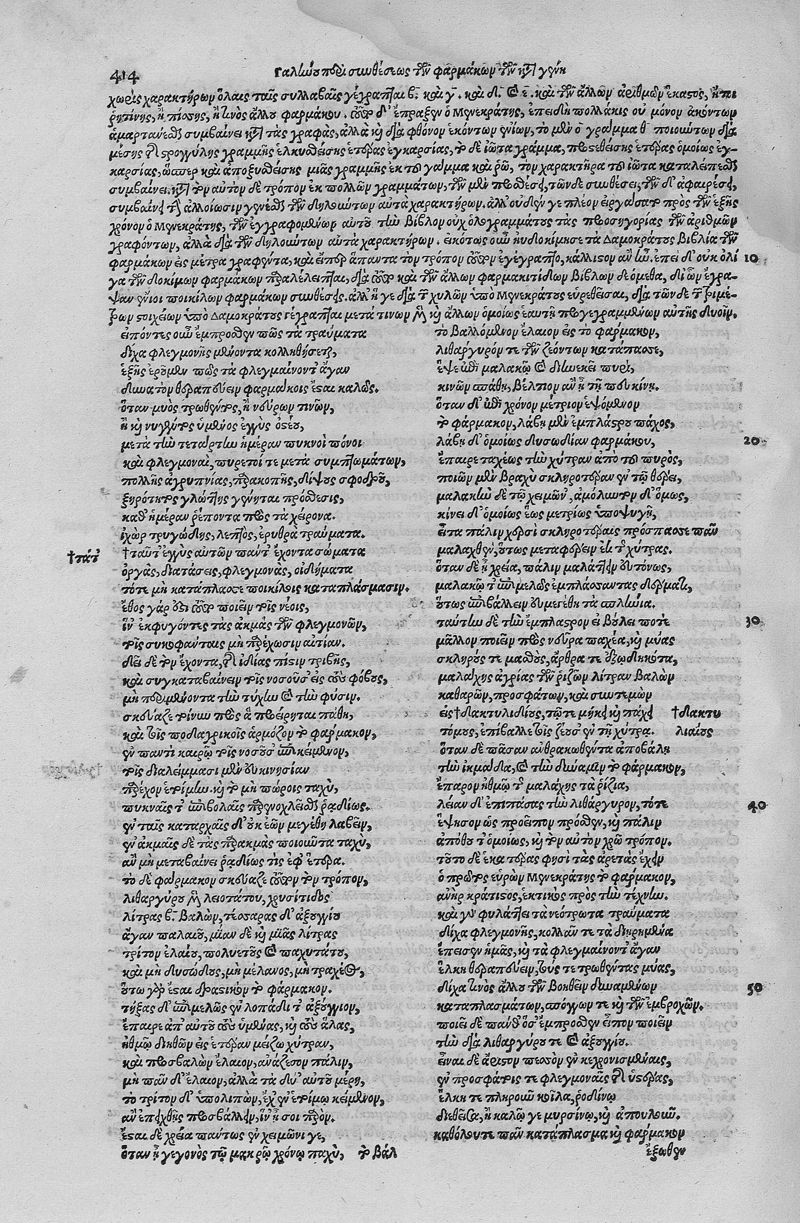 414 Γαληνοῦ περὶ συνθέσεως τῶν φαρμάκων τῶν κατὰ γένη
χωρὶς χαρακτήρων ὅλαις ταῖς συλλαβαῖς γέγραπται β. καὶ γ. καὶ δ. καὶ ε. καὶ τῶν ἄλλων ἀριθμῶν ἕκαστος, ἤτοι
ῥητίνης, ἢ πίσσης, ἤ τινος ἄλλου φαρμάκου. τοῦτο δ' ἔπραξεν ὁ Μενεκράτης, ἐπειδὴ πολλάκις οὐ μόνον ἀκόντων
ἁμαρτάνεσθαι συμβαίνει κατὰ τὰς γραφὰς, ἀλλὰ καὶ διὰ φθόνον ἑκόντων ἐνίων, τὸ μὲν ο γράμμα θ ποιούντων διὰ
μέσης τῆς στρογγύλης γραμμῆς ἑλκυσθείσης ἑτέρας ἐγκαρσίας, τὸ δὲ ἰῶτα γράμμα, προστεθείσης ἑτέρας ὁμοίως ἐγ-
καρσίας, ὥσπερ καὶ ἀποξυσθείσης μιᾶς γραμμῆς ἐκ τοῦ γάμμα καὶ ρω, τὸν χαρακτῆρα τοῦ ἰῶτα καταλείπεσθαι
συμβαίνει. κατὰ τὸν αὐτὸν δὲ τρόπον ἐκ πολλῶν γραμμάτων, τῶν μὲν προσθέσει, τῶν δὲ συνθέσει, τῶν δ' ἀφαιρέσει,
συμβαίνει τὴν ἀλλοίωσιν γενέσθαι τῶν δηλούντων αὐτὰ χαρακτήρων. ἀλλ' οὐδέν γε πλέον εἰργάσατο πρὸς τὸν ἑξῆς
χρόνον ὁ Μενεκράτης, τῶν ἐγγραφομένων αὐτοῦ τὴν βίβλον οὐχ ὁλογραμμάτους τὰς προσηγορίας τῶν ἀριθμῶν
γραφόντων, ἀλλὰ διὰ τῶν δηλούντων αὐτὰ χαρακτήρων. εἰκότως οὖν ηὐδοκίμησε τὰ Δαμοκράτους βιβλία τῶν
φαρμάκων εἰς μέτρα γραφέντα, καὶ εἴπερ ἅπαντα τὸν τρόπον τοῦτον ἐγέγραπτο, κάλλιστον ἂν ἦν. ἐπεὶ δ' οὐκ ὀλί 10
γα τῶν δοκίμων φαρμάκων παραλέλειπται, διὰ τοῦτο καὶ τῶν ἄλλων φαρμακιτίδων βίβλων δεόμεθα, δι' ὧν ἔγρα-
ψαν ἔνιοι ποικίλων φαρμάκων συνθέσεις. ἀλλ' ἥ γε διὰ τῶν χυλῶν ὑπὸ Μενεκράτους εὑρεθεῖσα, διὰ τῶνδε τῶν τριμέ-
τρων στοιχείων ὑπὸ Δαμοκράτους γέγραπται μετά τινων καὶ ἄλλων ὁμοίως ἑαυτῇ προγεγραμμένων αὐτῆς δυοῖν.
εἰπόντες οὖν ἔμπροσθεν πῶς τὰ τραύματα
δίχα φλεγμονῆς μένοντα κολληθήσεται,
ἑξῆς ἐροῦμεν πῶς τὰ φλεγμαίνοντ' ἄγαν
δυνατὸν θεραπεύειν φαρμάκοις ἔσται καλῶς.
ὅταν μυὸς τρωθέντος, ἢ νεύρων τινῶν,
ἢ καὶ νυγέντος ὑμένος ἐγγὺς ὀστέου,
μετὰ τὴν τετάρτην ἡμέραν πυκνοὶ πόνοι
καὶ φλεγμοναὶ, πυρετοί τε μετὰ συμπτωμάτων,
πολλῆς ἀγρυπνίας, παρακοπῆς, δίψους σφοδροῦ,
ξηρότητος γλώττης γένηται πρόσθεσις,
καθ' ἡμέραν ῥέποντα πρὸς τὰ χείρονα.
ἰχὼρ τρυγώδης, λεπτὸς, ἐρυθρὰ τραύματα.
†πάτ' †ταῦτ' ἐγγὺς αὐτῶν παῦτ' ἔχοντα σώματα
ὀργὰς, διατάσεις, φλεγμονὰς, οἰδήματα
τότε μὴ κατάπλασσε ποικίλοις καταπλάσμασιν.
ἔθος γάρ ἐστι τοῦτο ποιεῖν τοῖς νέοις,
ἵν' ἐκφυγόντες τὰς ἀκμὰς τῶν φλεγμονῶν,
τοῖς συκοφάνταις μὴ παρέχωσιν αἰτίαν.
δεῖ δὲ τὸν ἔχοντα, τῆς ἰδίας πίστιν τριβῆς,
καὶ συγκαταβαίνειν τοῖς νοσοῦσ' εἰς τοὺς φόβους,
μὴ περιμένοντα τὴν τύχην καὶ τὴν φύσιν.
σκεύαζε τοίνυν πρὸς ἃ προείρηται πάθη,
καὶ τοῖς ποδαγρικοῖς ἁρμόζον τὸ φάρμακον,
ἐν παντὶ καιρῷ τοῖς νοσοῦσ' ἐπικείμενον,
τοῖς διαλείμμασι μὲν εὐκινησίαν
παρέχον ἑτοίμην καὶ τὸ μὴ πώροις ταχὺ,
πυκναῖς τ' ἐπιβολαῖς παρενοχλεῖσθαι ῥᾳδίως.
ἐν ταῖς καταρχαῖς δ' οὐκ ἐῶν μέγεθη λαβεῖν,
ἐν ἀκμαῖς δὲ τὰς παρακμὰς ποιοῦντα ταχὺ,
ἂν μὴ μεταβαίνῃ ῥᾳδίως τις ἐφ' ἕτερα.
τὸ δὲ φάρμακον σκεύαζε τοῦτον τὸν τρόπον,
λιθαργύρου λειοτάτου, χρυσίτιδος
λίτρας β. βαλὼν, τέσσαρας δ' ἀξυγγίου
ἄγαν παλαιοῦ, μίαν δὲ καὶ μιᾶς λίτρας
τρίτον ἐλαίου, πολυετοῦς καὶ παχυτάτου,
καὶ μὴ δυσώδους, μὴ μέλανος, μὴ τραχέος,
οὕτω γὰρ ἔσται δραστικὸν τὸ φάρμακον.
τήξας δ' ἐπιμελῶς ἐν λοπάδι τ' ἀξύγγιον,
ἔπαιρε ἀπ' αὐτοῦ τοὺς ὑμένας, καὶ τοὺς ἅλας,
ἠθμῷ διηθῶν εἰς ἑτέραν μείζω χύτραν,
καὶ προσβαλὼν ἔλαιον, ἀνάζεσον πάλιν,
μὴ πᾶν δ' ἔλαιον, ἀλλὰ τὰ δύ' αὐτοῦ μέρη,
τὸ τρίτον δ' ὑπολιπὼν, ἔχ' ἐν ἑτοίμῳ κείμενον,
ἂν ἐπειχθῇς προσβάλλειν, ἵν' ᾖ σοι παρόν.
ἔσται δὲ χρεία παύτως ἐν χειμῶνί γε,
ὅταν ᾖ γεγονὸς τῷ μακρῷ χρόνῳ παχὺ, τὸ βάλ
τὸ βαλλόμενον ἔλαιον εἰς τὸ φάρμακον,
λιθάργυρόν τε τῶν ζεόντων κατάπασσε,
ἕψε ἐπὶ μαλακῷ καὶ διηνεκεῖ πυρὶ,
κινῶν σπάθῃ, βέλτιον ἂν ᾖ τῇ πευκίνῃ.
ὅταν δ' ἐπὶ χρόνον μέτριον ἑψόμενον
τὸ φάρμακον, λάβῃ μὲν ἐμπλάστρου πάχος,
λάβῃ δ' ὁμοίως δυσωδίαν φαρμάκου, 20
ἔπαιρε ταχέως τὴν χύτραν ἀπὸ τοῦ πυρὸς,
ποιῶν μὲν βραχὺ σκληρότερον ἐν τῷ θέρει,
μαλακὴν δὲ τῷ χειμῶνι, ἀμόλυντον δ' ὅμως,
κίνει δ' ὁμοίως ἕως μετρίως ὑποψυγῇ,
εἶτα πάλιν χερσὶ σκληροτέραις πρόσπασσε πᾶν
μαλαχθὲν, οὕτως μεταφέρειν ἐκ τῆς χύτρας.
ὅταν δ' ᾖ χρεία, πάλιν μαλάττειν εὐτόνως,
μαλακῷ τ' ἐπιμελῶς ἐμπλάσαντας δέρματι,
οὕτως ἐπιβάλλειν εὐμεγέθη τὰ σπληνία.
ταύτην δὲ τὴν ἔμπλαστρον εἰ βούλει ποτὲ 30
μᾶλλον ποιεῖν πρὸς νεῦρα παχέα, καὶ μύας
σκληρούς τε μαστοὺς, ἄρθρα τε ἐξῳδηκότα,
μαλάχης ἀγρίας τῶν ῥιζῶν λίτραν βαλὼν
καθαρῶν, προσφάτων, καὶ συντεμὼν
εἰς †δακτυλιδίους, τῷ τε μήκει καὶ πάχει †δακτυ
τόμους, ἐπίβαλλε τοῖς ζέουσ' ἐν τῇ χύτρᾳ. λιαίους
ὅταν δὲ πᾶσαν ἀνθρακωθέντα ἀποβάλῃ
τὴν ἰκμάδα, καὶ τὴν δύναμιν τὸ φάρμακον,
ἔπαρον ἠθμῷ τῆς μαλάχης τὰ ῥιζία,
λείαν δ' ἐπιπάσας τὴν λιθάργυρον, τότε 40
ἕψησον ὡς προεῖπον πρόσθεν, καὶ πάλιν
ἀπόθου τ' ὁμοίως, καὶ τὸν αὐτὸν χρῶ τρόπον.
τοῦτο δὲ ἑκατέρας φησὶ τὰς ἀρετὰς ἔχειν
ὁ πρῶτος εὑρὼν Μενεκράτης τὸ φάρμακον,
ἀνὴρ κράτιστος, ἑκτικὸς πρὸς τὴν τέχνην.
καὶ γὰρ φυλάττει τὰ νεότρωτα τραύματα
δίχα φλεγμονῆς, κολλᾶν τε τὰ διῃρημένα
ἔπεισεν ἡμᾶς, καὶ τὰ φλεγμαίνοντ' ἄγαν
ἕλκη θεραπεύειν, τούς τε τρωθέντας μύας,
δίχα τινὸς ἄλλου τῶν βοηθεῖν δυναμένων 50
καταπλασμάτων, σπόγγων τε καὶ τῶν ἐμβροχῶν.
ποιεῖ δὲ πάνθ' ὅσ' ἔμπροσθεν εἶπον ποιεῖν
τὴν διὰ λιθαργύρου τε καὶ ἀξυγγίου.
εἶναι δὲ ἄριστον πεσσὸν ἐν κεχρονισμέναις,
ἐν προσφάτοις τε φλεγμοναῖς τῆς ὑστέρας,
ἕλκη τε πληροῦν κοῖλα, ῥοδίνῳ
διεθεῖσα, ἢ καλῷ γε μυρσίνῳ, καὶ ἀπουλοῦν.
καθόλου τε πᾶν κατάπλασμα, καὶ φάρμακον
ἔξωθεν